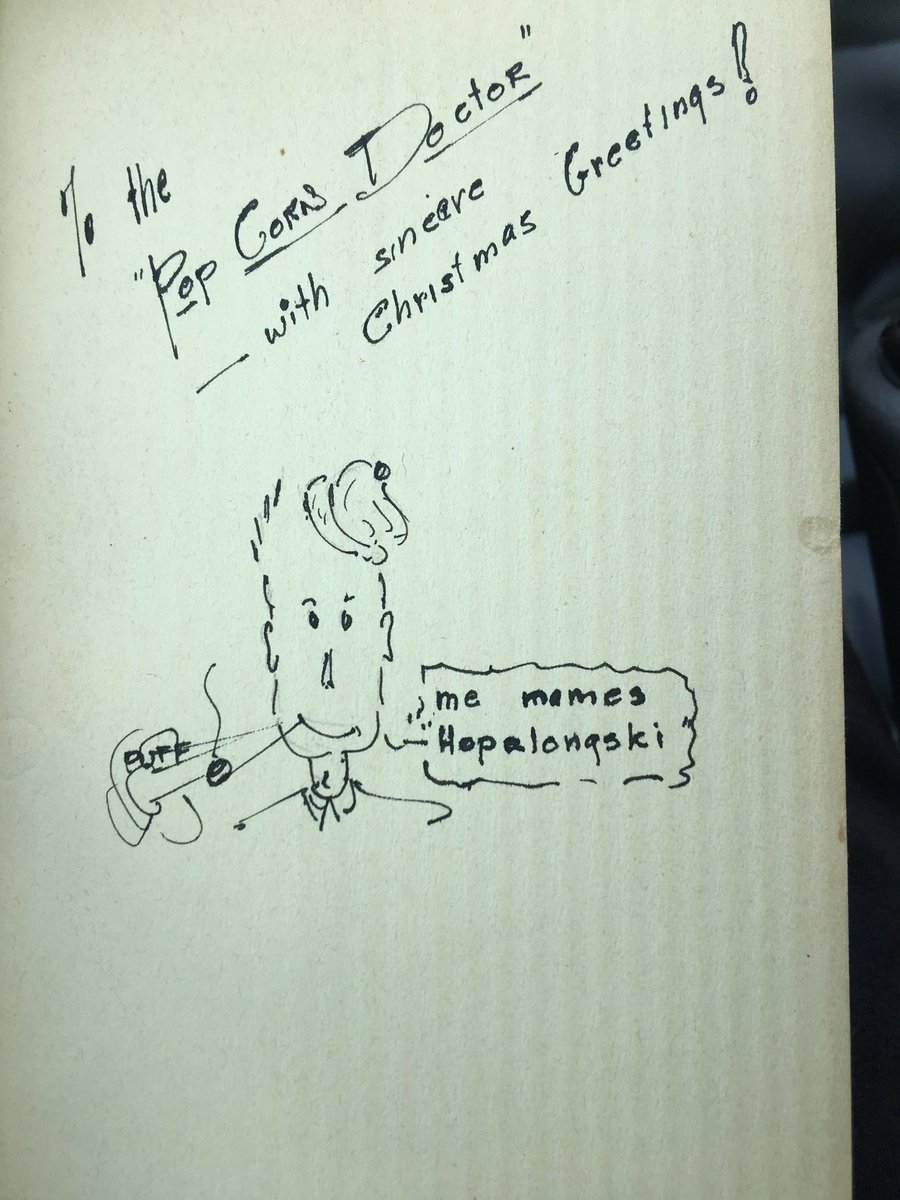 To the
"Pop Corn Doctor"
— with sincere
Christmas Greetings!
PUFF
me mames
"Hopalongski"